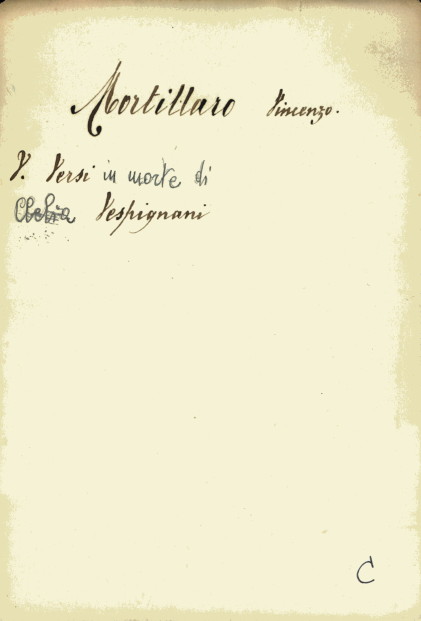 Mortillaro Vincenzo.
V. Versi in morte di
Clelia Vespignani
C